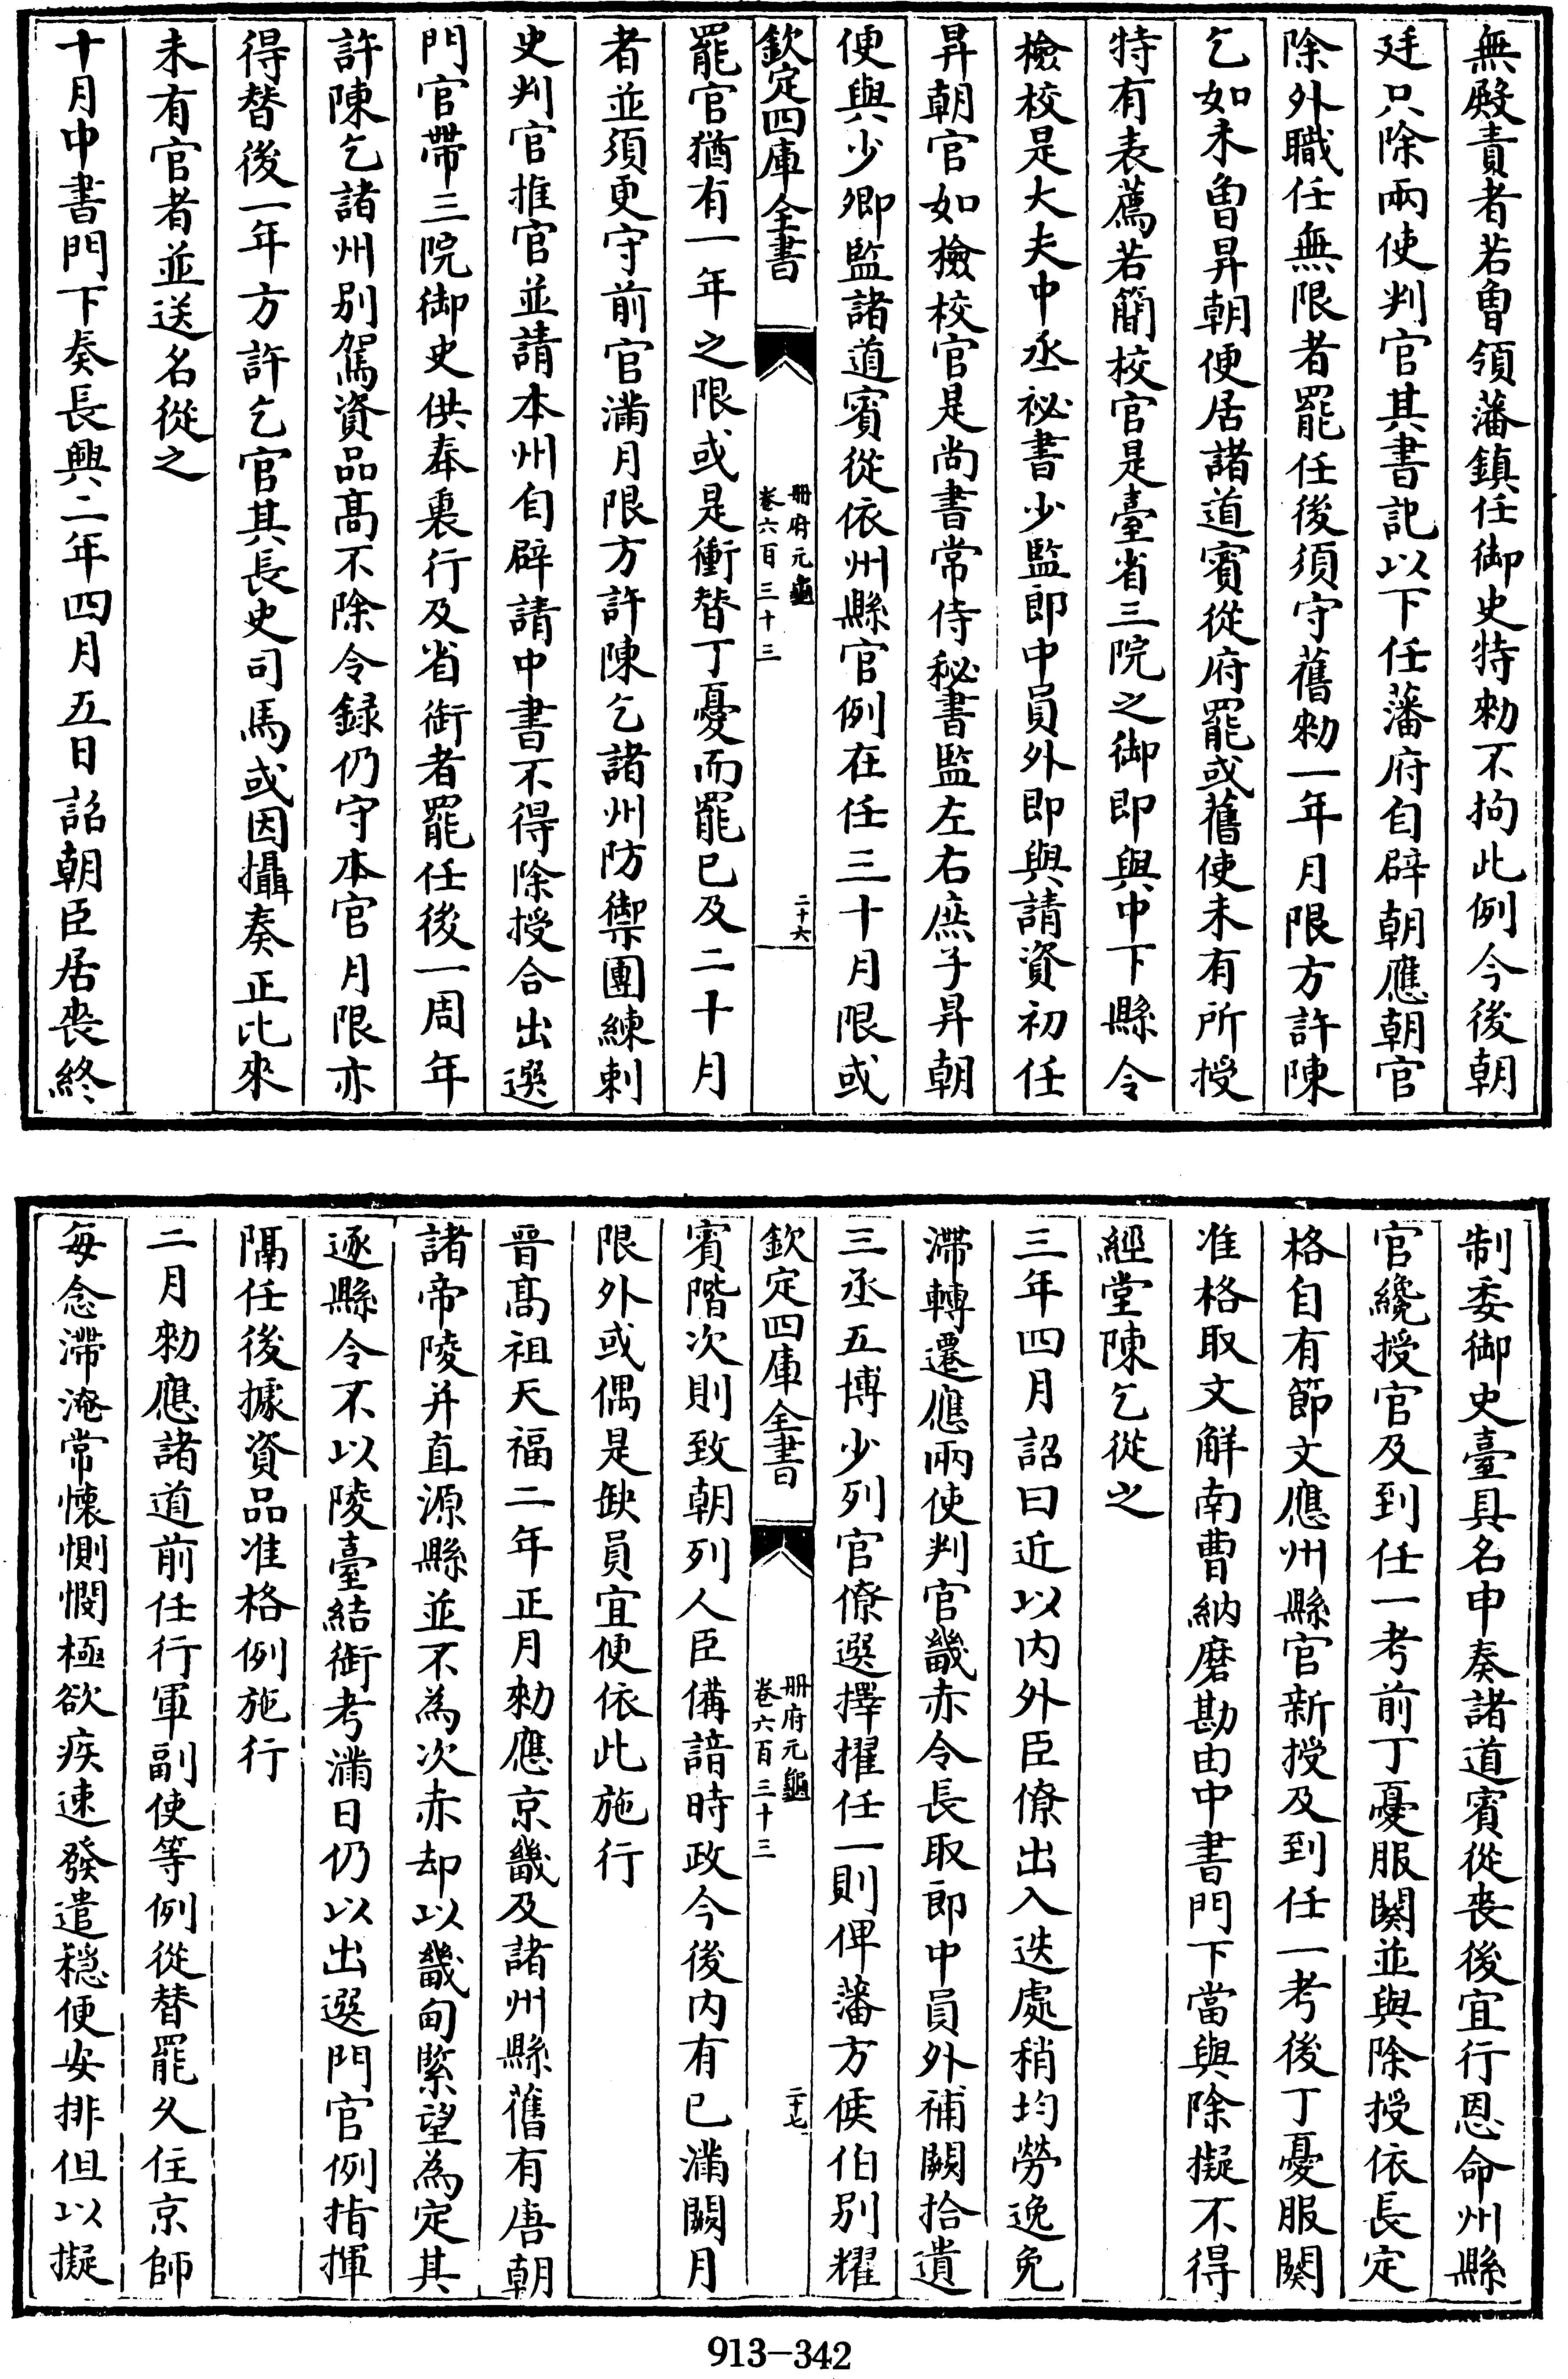 無殿責者若曾領藩鎮任御史特勑不拘此例今後朝
廷只除兩使判官其書記以下任藩府自辟朝應朝官
除外職任無限者罷任後須守舊勑一年月限方許陳
乞如未曾昇朝便居諸道賓從府罷或舊使未有所授
特有表薦若簡校官是臺省三院之御即與中下縣令
檢校是大夫中丞祕書少監郎中員外即與請資初任
昇朝官如檢校官是尚書常侍秘書監左右庶子昇朝
便與少卿監諸道賓從依州縣官例在任三十月限或
欽定四庫全書
冊府元龜
卷六百三十三
二十六
罷官猶有一年之限或是衝替丁憂而罷已及二十月
者並須更守前官滿月限方許陳乞諸州防禦團練刺
史判官推官並請本州自辟請中書不得除授合出選
門官帶三院御史供奉裏行及省銜者罷任後一周年
許陳乞諸州別駕資品高不除令録仍守本官月限亦
得替後一年方許乞官其長史司馬或因攝奏正比來
未有官者並送名從之
十月中書門下奏長興二年四月五日詔朝臣居喪終
制委御史臺具名申奏諸道賓從喪後宜行恩命州縣
官纔授官及到任一考前丁憂服闋並與除授依長定
格自有節文應州縣官新授及到任一考後丁憂服闋
准格取文解南曹納磨勘由中書門下當與除擬不得
經堂陳乞從之
三年四月詔曰近以内外臣僚出入迭處稍均勞逸免
滯轉遷應兩使判官畿赤令長取郎中員外補闕拾遺
三丞五博少列官僚選擇擢任一則俾藩方侯伯別耀
欽定四庫全書
冊府元龜
卷六百三十三
二十七
賓階次則致朝列人臣備諳時政今後内有已滿闕月
限外或偶是缺員宜便依此施行
晉高祖天福二年正月勑應京畿及諸州縣舊有唐朝
諸帝陵并直源縣並不為次赤却以畿甸緊望為定其
逐縣令不以陵臺結銜考滿日仍以出選門官例指揮
隔任後據資品准格例施行
二月勑應諸道前任行軍副使等例從替罷久住京師
每念滯淹常懷惻憫極欲疾速發遣穩便安排但以擬
913-342